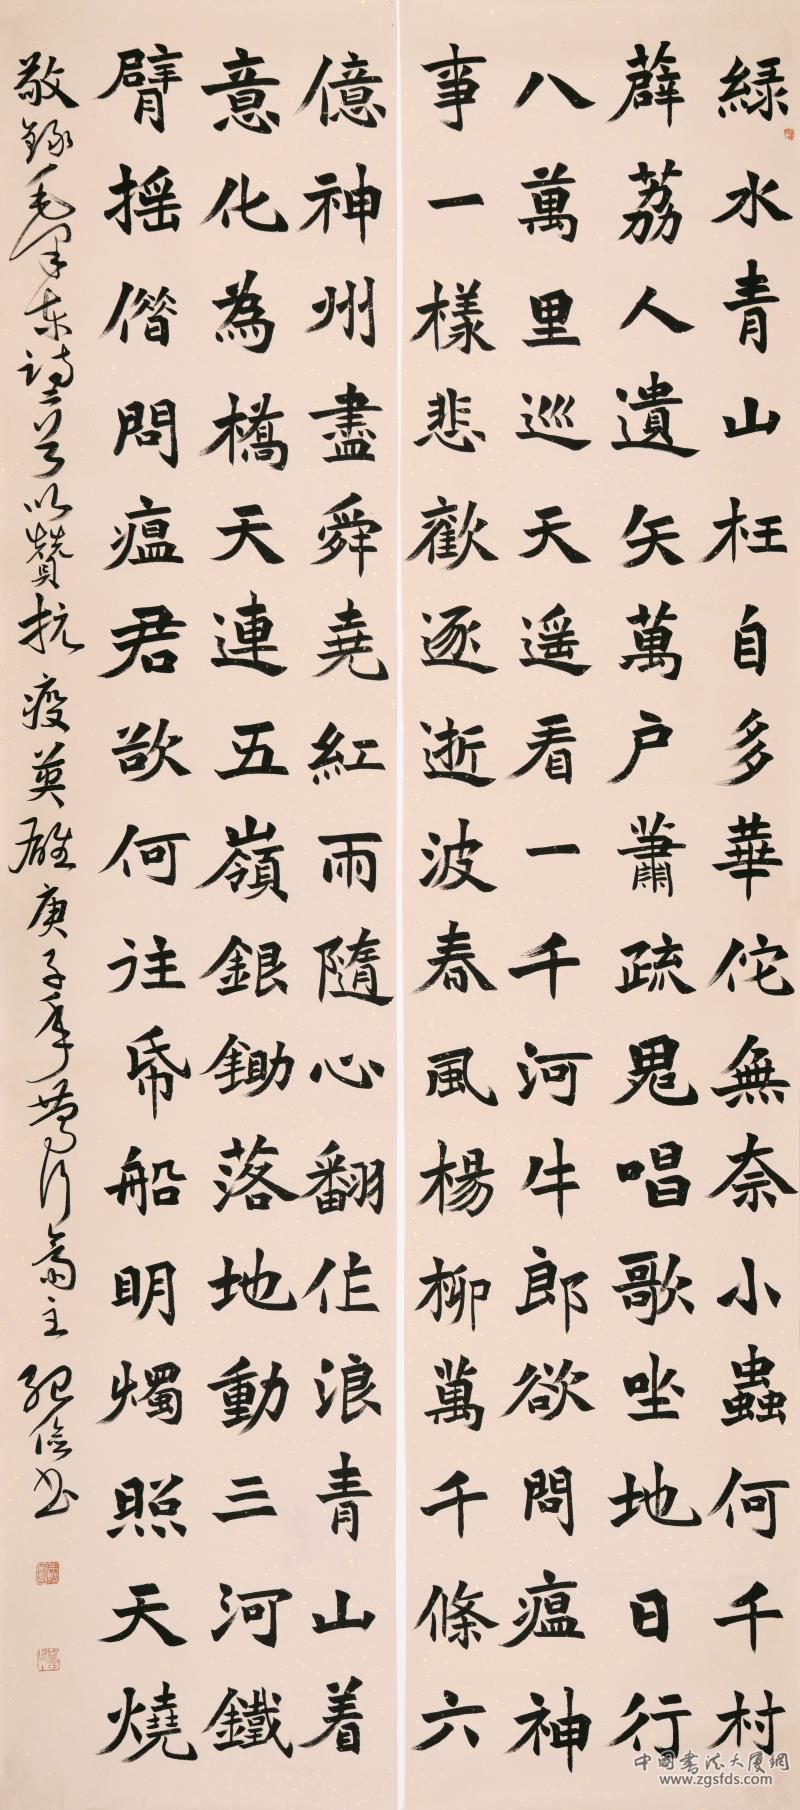 綠水青山枉自多華佗無奈小蟲何千村
薜荔人遺矢萬户蕭疏鬼唱歌坐地日行
八萬里巡天遥看一千河牛郎欲問瘟神
事一樣悲歡逐逝波春風楊柳萬千條六
億神州盡舜堯紅雨隨心翻作浪青山着
意化為橋天連五嶺銀鋤落地動三河鐵
臂摇借問瘟君欲何往帋船明燭照天燒
敬錄毛澤東詩二首以贊抗疫英雄庚子年齋主書
中国書法大厦網
www.zgsfds.com